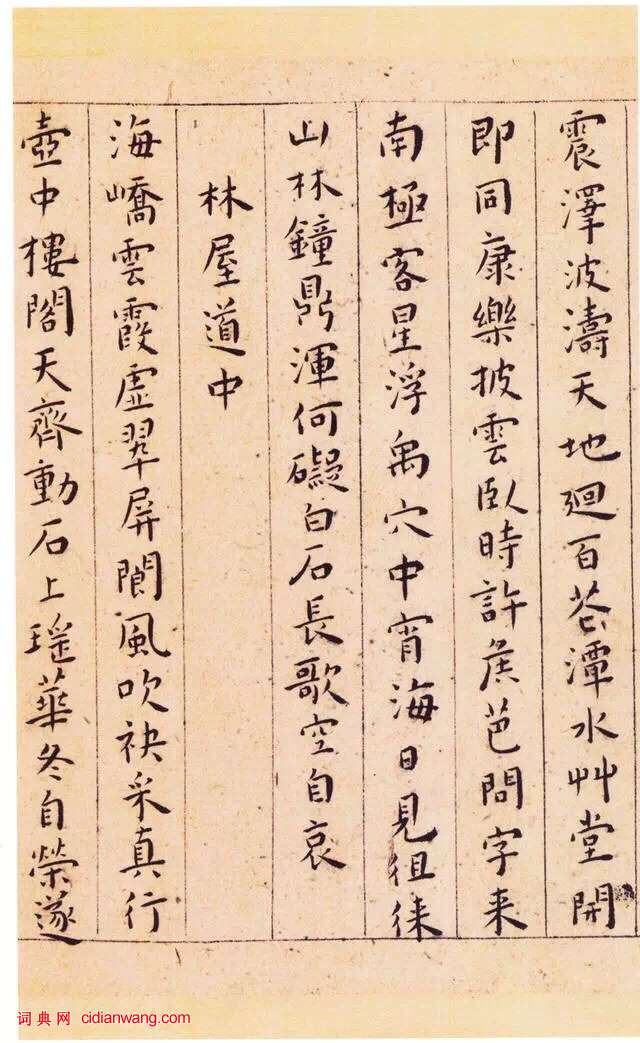 震澤波濤天地廻百花潭水艸堂開
即同康樂披雲臥時許侯芭問字来
南極客星浮禹穴中宵海日見徂徠
山林鐘鼎渾何礙白石長歌空自哀
林屋道中
海嶠雲霞虛翠屏閬風吹袂采真行
壺中樓閣天齊動石上瑤華冬自榮遂
词典网 cidianwang.com